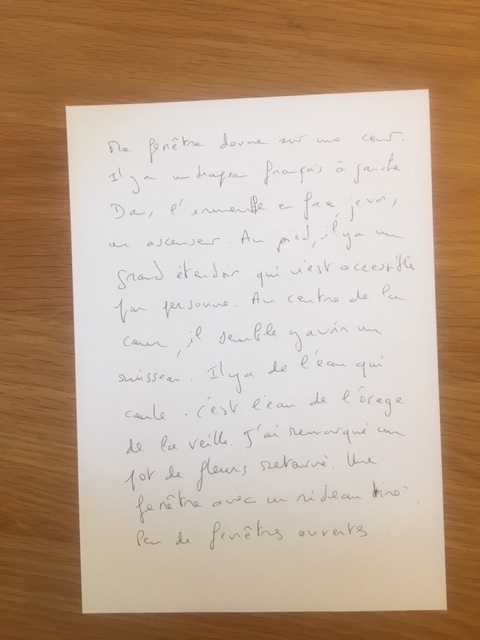 Ma fenêtre donne sur une cour.
Il y a un drapeau français à gauche.
Dans l'immeuble en face, je vois,
un ascenseur. Au pied, il y a un
grand étendoir qui n'est accessible
par personne. Au centre de la
cour, il semble y avoir un
ruisseau. Il y a de l'eau qui
coule. C'est l'eau de l'orage
de la veille. J'ai remarqué un
pot de fleurs retourné. Une
fenêtre avec un rideau tiré.
Peu de fenêtres ouvertes